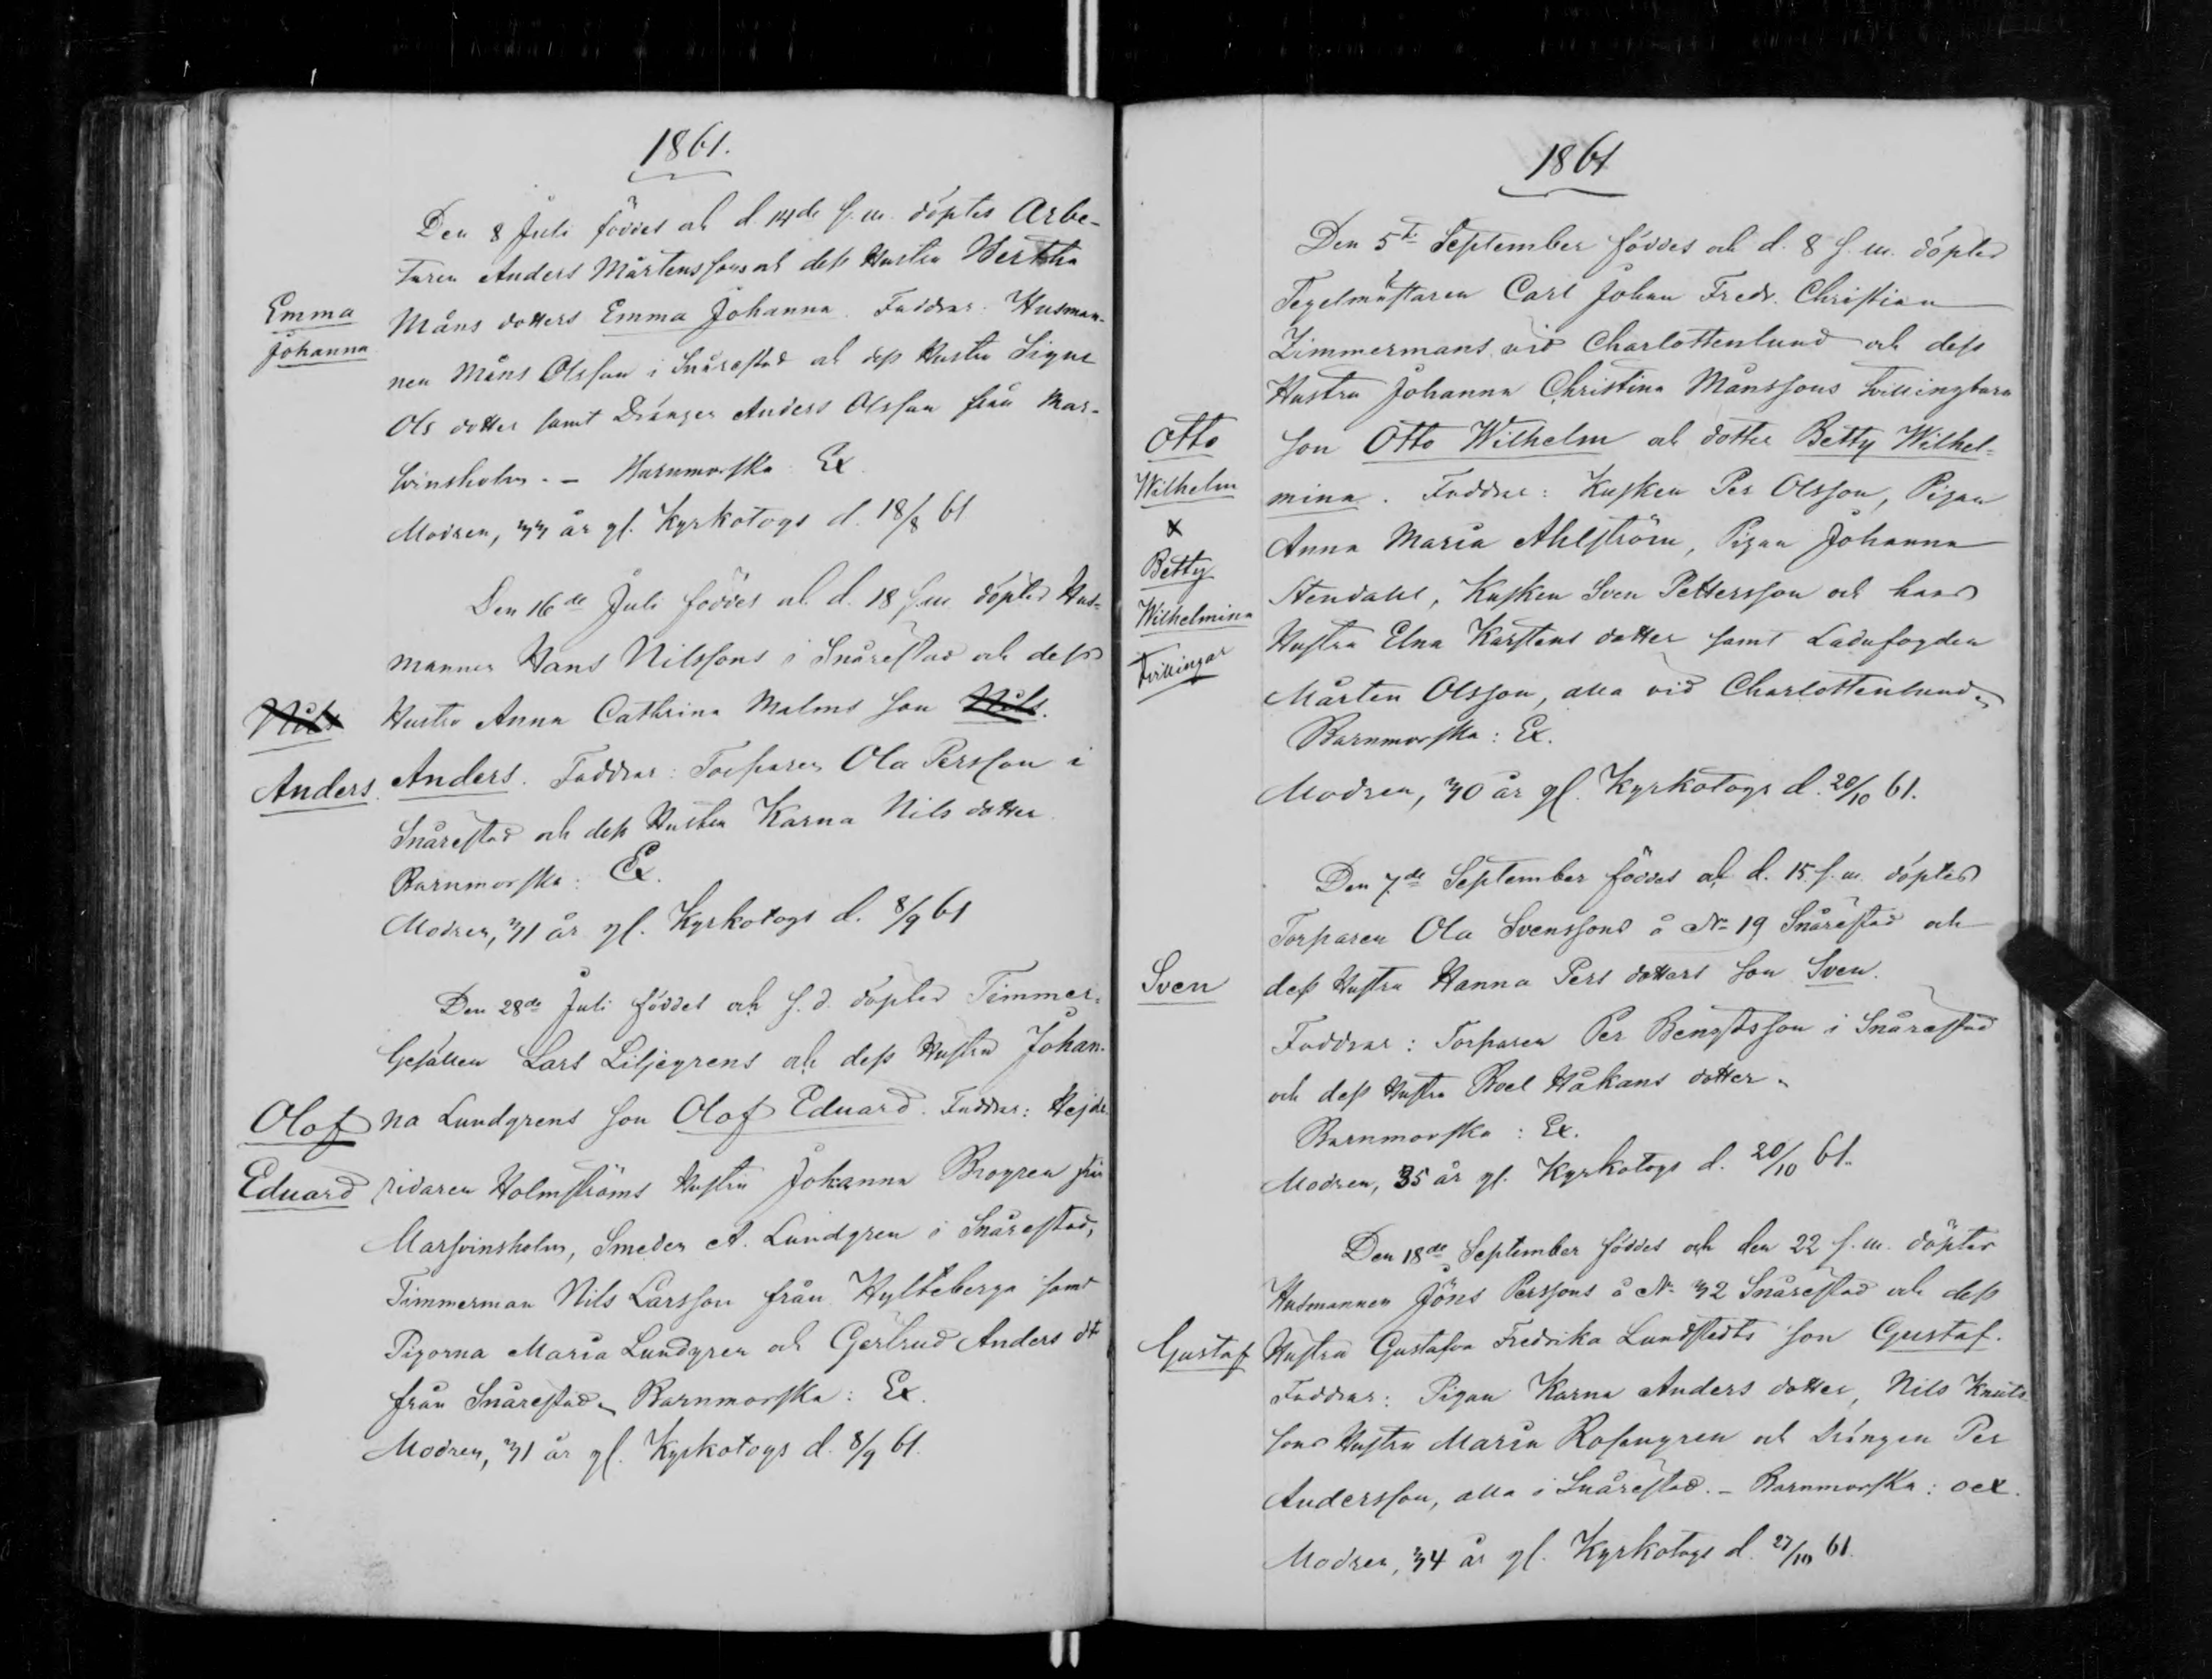 1861.
Den 8 Juli föddes och d 14de s. m. döptes Arbe-
taren Anders Mårtenssons och dess Hustru Bertha
Emma
Johanna
Måns dotters Emma Johanna. Faddrar: Husman-
nen Måns Olsson i Snårestad och dess Hustru Signe
Ols dotter samt Drängen Anders Olsson från Mar-
svinsholm. – Barnmorska: Ex.
Modren, 33 år gl. Kyrkotogs d. 18/8 61
Den 16de Juli föddes och d. 18 s. m. döptes Hus-
mannen Hans Nilssons i Snårestad och dess
Nils
Hustru Anna Cathrina Malms son Nils.
Anders.
Anders. Faddrar: Torparen Ola Persson i
Snårestad och dess Hustru Karna Nils dotter.
Barnmorska: Ex.
Modren, 31 år gl. Kyrkotogs d. 8/9 61
Den 28de Juli föddes och s. d. döptes Timmer-
Gesällen Lars Liljegrens och dess Hustru Johan-
Olof
Eduard
na Lundgrens son Olof Eduard. Faddrar: Hejde-
ridaren Holmströms Hustru Johanna Brogren från
Marsvinsholm, Smeden A. Lundgren i Snårestad,
Timmerman Nils Larsson från Hylteberga samt
Pigorna Maria Lundgren och Gertrud Anders dtr
från Snårestad. Barnmorska: Ex.
Modren, 31 år gl. Kyrkotogs d. 8/9 61.
1861
Den 5te September föddes och d. 8 s. m. döptes
Tegelmästaren Carl Johan Fredr. Christian
Zimmermans vid Charlottenlund och dess
Hustru Johanna Christina Månssons tvillingbarn
Otto
Wilhelm
x
Betty
Wilhelmina
Tvillingar
son Otto Wilhelm och dotter Betty Wilhel-
mina. Faddrar: Kusken Per Olsson, Pigan
Anna Maria Ahlström, Pigan Johanna
Stendahl, Kusken Sven Pettersson och hans
Hustru Elna Karstens dotter samt Ladufogden
Mårten Olsson, alla vid Charlottenlund.
Barnmorska: Ex.
Modren, 30 år gl. Kyrkotogs d. 20/10 61.
Den 7de September föddes och d. 15 s. m. döptes
Torparen Ola Svenssons å No 19 Snårestad och
Sven
dess Hustru Hanna Pers dotters son Sven.
Faddrar: Torparen Per Bengtsson i Snårestad
och dess Hustru Boel Håkans dotter.
Barnmorska: Ex.
Modren, 35 år gl. Kyrkotogs d. 20/10 61.
Den 18de September föddes och den 22 s. m. döptes
Husmannen Jöns Perssons å No 32 Snårestad och dess
Gustaf
Hustru Gustafva Fredrika Lundstedts son Gustaf.
Faddrar: Pigan Karna Anders dotter, Nils Knuts-
sons Hustru Maria Rosengren och Drängen Per
Andersson, alla i Snårestad. – Barnmorska: oex.
Modren, 34 år gl. Kyrkotogs d. 27/10 61.